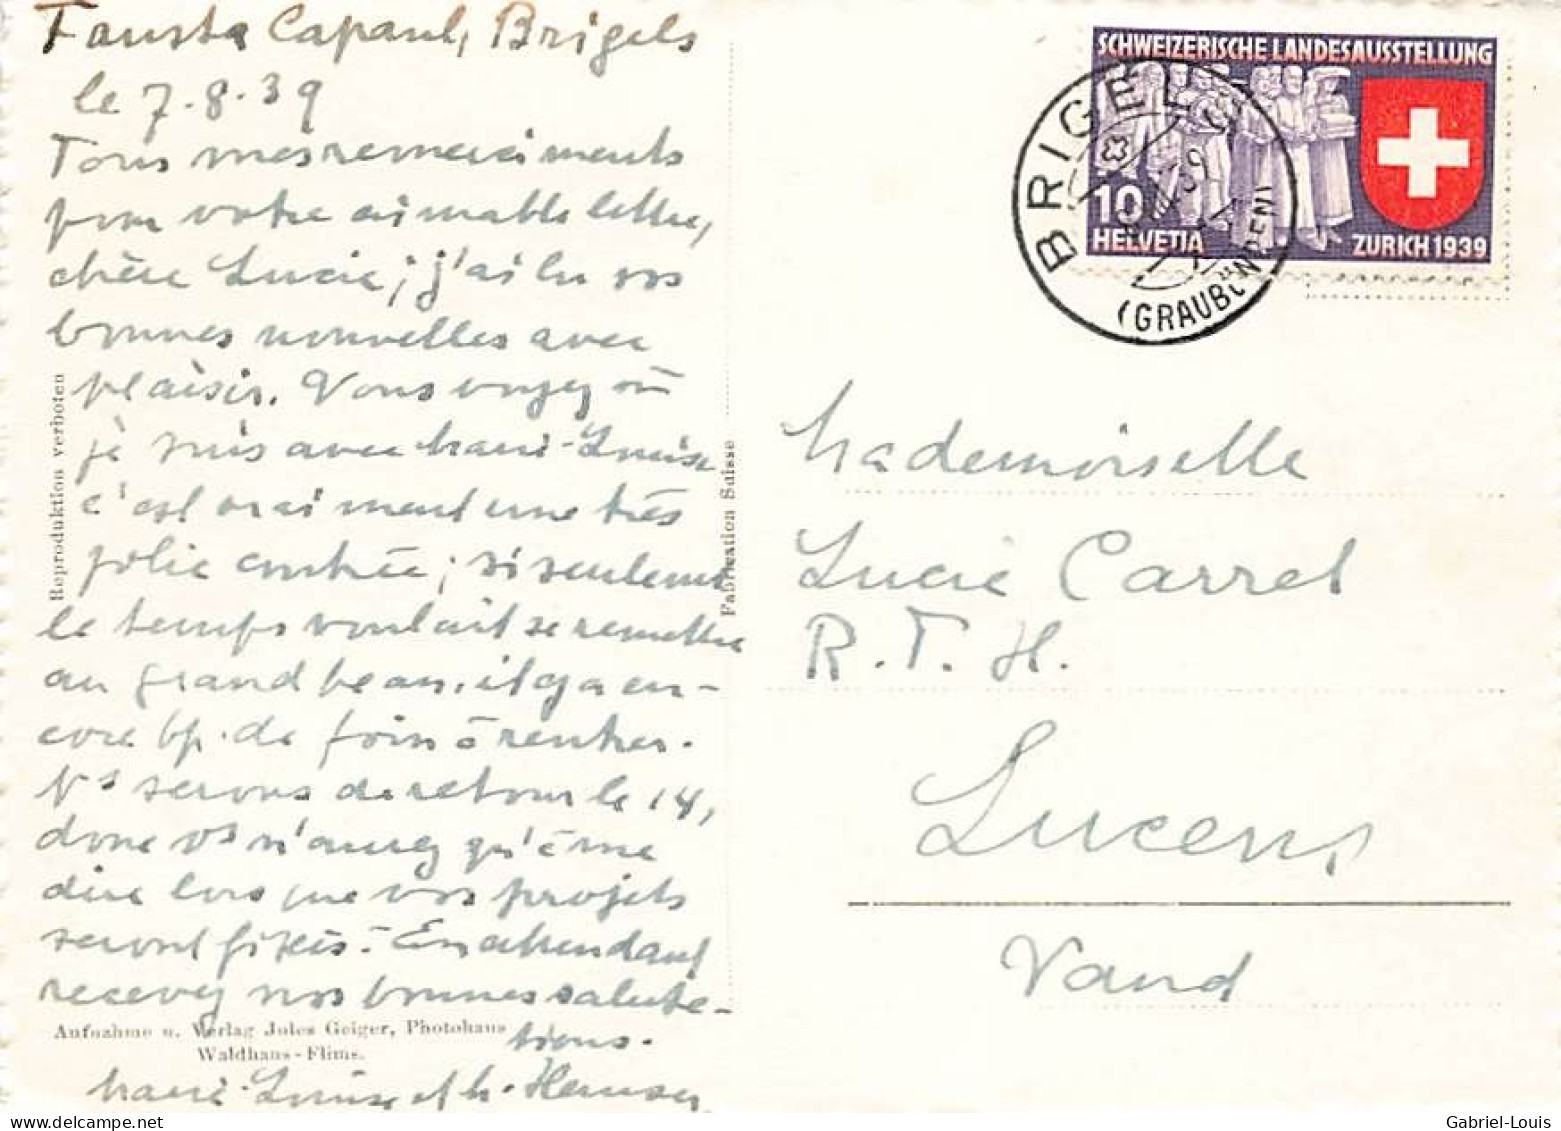 Fausta Capaul, Brigels
le 7.8.39
Tous mes remerciements
pour votre aimable lettre,
chère Lucie; j'ai lu vos
bonnes nouvelles avec
plaisir. Vous voyez où
je suis avec Marie-Louise
c'est vraiment une très
jolie contrée; si seulement
le temps voulait se remettre
au grand beau, il y a en-
core bp. de foin à rentrer.
Ns serons de retour le 14,
donc vs n'aurez qu'à me
dire lorsque vos projets
seront fixés. En attendant
recevez nos bonnes saluta-
tions.
Marie-Louise et
Reproduktion verboten
Fabrication Suisse
Aufnahme u. Verlag Jules Geiger, Photohaus
Waldhaus-Flims.
SCHWEIZERISCHE LANDESAUSSTELLUNG
10
HELVETIA
ZURICH 1939
BRIGELS
(GRAUBÜNDEN)
Mademoiselle
Lucie Carrel
R.T.H.
Lucens
Vaud
Gabriel-Louis